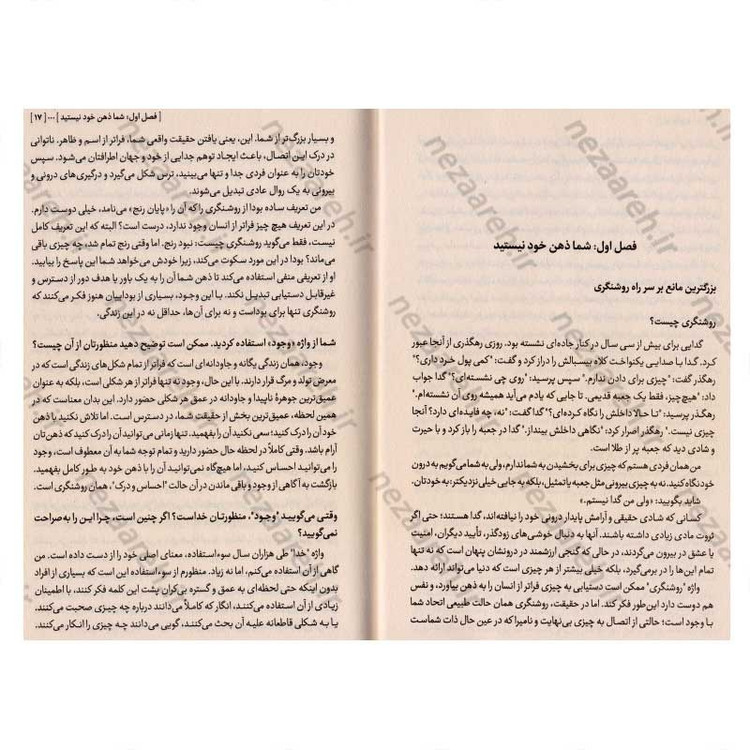 فصل اول: شما ذهن خود نیستید
بزرگترین مانع بر سر راه روشنگری
روشنگری چیست؟
گدایی برای بیش از سی سال در کنار جاده‌ای نشسته بود. روزی رهگذری از آنجا عبور
کرد. گدا با صدایی یکنواخت کلاه بیسبالش را دراز کرد و گفت: "کمی پول خرد داری؟"
رهگذر گفت: "چیزی برای دادن ندارم." سپس پرسید: "روی چی نشسته‌ای؟" گدا جواب
داد: "هیچ‌چیز، فقط یک جعبه قدیمی. تا جایی که یادم می‌آید همیشه روی آن نشسته‌ام."
رهگذر پرسید: "تا حالا داخلش را نگاه کرده‌ای؟" گدا گفت: "نه، چه فایده‌ای دارد؟ آنجا
چیزی نیست." رهگذر اصرار کرد: "نگاهی داخلش بینداز." گدا در جعبه را باز کرد و با حیرت
و شادی دید که جعبه پر از طلا است.
من همان فردی هستم که چیزی برای بخشیدن به شما ندارم، ولی به شما می‌گویم به درون
خود نگاه کنید. نه به چیزی بیرونی مثل جعبه یا تمثیل، بلکه به جایی خیلی نزدیکتر: به خودتان.
شاید بگویید: «ولی من گدا نیستم.»
کسانی که شادی حقیقی و آرامش پایدار درونی خود را نیافته‌اند، گدا هستند؛ حتی اگر
ثروت مادی زیادی داشته باشند. آنها به دنبال خوشی‌های زودگذر، تأیید دیگران، امنیت
یا عشق در بیرون می‌گردند، در حالی که گنجی ارزشمند در درونشان پنهان است که نه تنها
تمام این‌ها را در برمی‌گیرد، بلکه خیلی بیشتر از هر چیزی است که دنیا می‌تواند ارائه دهد.
واژه "روشنگری" ممکن است دستیابی به چیزی فراتر از انسان را به ذهن بیاورد، و نفس
هم دوست دارد این‌طور فکر کند. اما در حقیقت، روشنگری همان حالت طبیعی اتحاد شما
با وجود است؛ حالتی از اتصال به چیزی بی‌نهایت و نامیرا که در عین حال ذات شماست
[ فصل اول: شما ذهن خود نیستید ] ... [ ۱۷ ]
و بسیار بزرگ‌تر از شما. این، یعنی یافتن حقیقت واقعی شما، فراتر از اسم و ظاهر. ناتوانی
در درک این اتصال، باعث ایجاد توهم جدایی از خود و جهان اطرافتان می‌شود. سپس
خودتان را به عنوان فردی جدا و تنها می‌بینید، ترس شکل می‌گیرد و درگیری‌های درونی و
بیرونی به یک روال عادی تبدیل می‌شوند.
من تعریف ساده بودا از روشنگری را که آن را «پایان رنج» می‌نامد، خیلی دوست دارم.
در این تعریف هیچ چیز فراتر از انسان وجود ندارد، درست است؟ البته که این تعریف کامل
نیست، فقط می‌گوید روشنگری چیست: نبود رنج. اما وقتی رنج تمام شد، چه چیزی باقی
می‌ماند؟ بودا در این مورد سکوت می‌کند، زیرا خودش می‌خواهد شما این پاسخ را بیابید.
او از تعریفی منفی استفاده می‌کند تا ذهن شما آن را به یک باور یا هدف دور از دسترس و
غیرقابل دستیابی تبدیل نکند. با این وجود، بسیاری از بوداییان هنوز فکر می‌کنند که
روشنگری تنها برای بوداست و نه برای آن‌ها، حداقل نه در این زندگی.
شما از واژه «وجود» استفاده کردید. ممکن است توضیح دهید منظورتان از آن چیست؟
وجود، همان زندگی یگانه و جاودانه‌ای است که فراتر از تمام شکل‌های زندگی است که در
معرض تولد و مرگ قرار دارند. با این حال، وجود نه تنها فراتر از هر شکلی است، بلکه به عنوان
عمیق‌ترین جوهرهٔ ناپیدا و جاودانه در عمق هر شکلی حضور دارد. این بدان معناست که در
همین لحظه، عمیق‌ترین بخش از حقیقت شما، در دسترس است. اما تلاش نکنید با ذهن
خود آن را درک کنید؛ سعی نکنید آن را بفهمید. تنها زمانی می‌توانید آن را درک کنید که ذهنتان
آرام باشد. وقتی کاملاً در لحظه حال حضور دارید و تمام توجه شما به آن معطوف است، وجود
را می‌توانید احساس کنید، اما هیچ‌گاه نمی‌توانید آن را با ذهن خود به طور کامل بفهمید.
بازگشت به آگاهی از وجود و باقی ماندن در آن حالت "احساس و درک"، همان روشنگری است
وقتی می‌گویید "وجود"، منظورتان خداست؟ اگر چنین است، چرا این را به صراحت
نمی‌گویید؟
واژه "خدا" طی هزاران سال سوءاستفاده، معنای اصلی خود را از دست داده است. من
گاهی از آن استفاده می‌کنم، اما نه زیاد. منظورم از سوءاستفاده این است که بسیاری از افراد
بدون اینکه حتی لحظه‌ای به عمق و گستره بی‌کران پشت این کلمه فکر کنند، با اطمینان
زیادی از آن استفاده می‌کنند، انگار که کاملاً می‌دانند درباره چه چیزی صحبت می‌کنند.
یا به شکلی قاطعانه علیه آن بحث می‌کنند، گویی می‌دانند چه چیزی را انکار می‌کنند.
nezaareh.ir